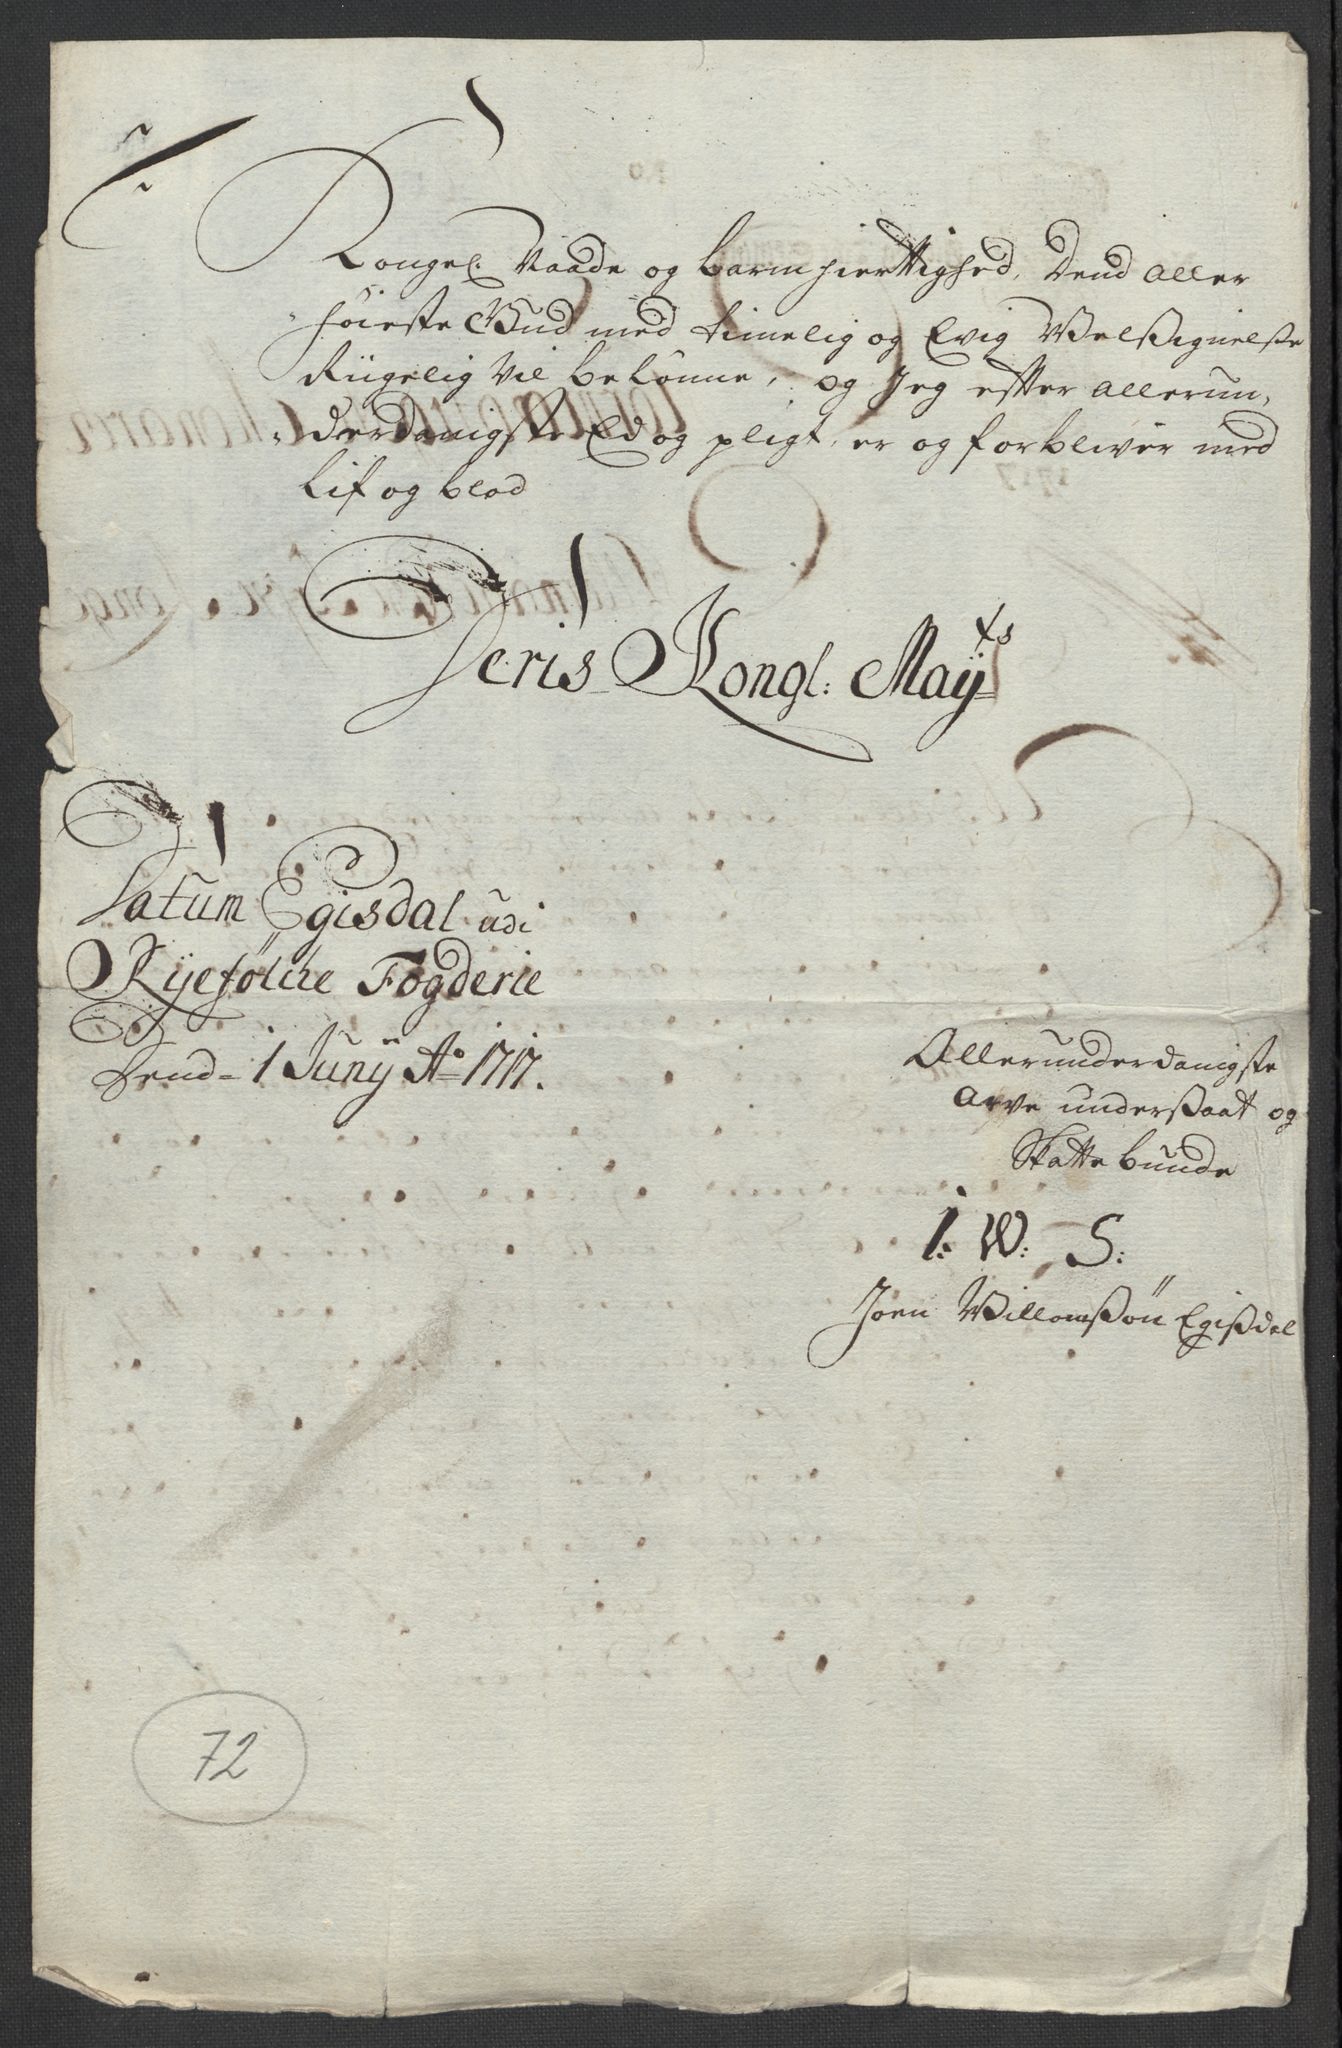 Kongel: Naade og barmhiertighed, Dend aller
höieste Gud med timelig og Evig Velsignelse
Riigelig vil belönne, og Jeg efter allerun,
derdanigste Ed og pligt, er og forbliver med
Lif og blod
Deris Kongl: May:ts
Datum Egisdal udi
Ryefölcke Fogderie
Dend 1 Junij Ao 1717.
Allerunderdanigste
arve undersaat og
Skatte bunde
I: W: S:
Joen Villomsön Egisdal
72